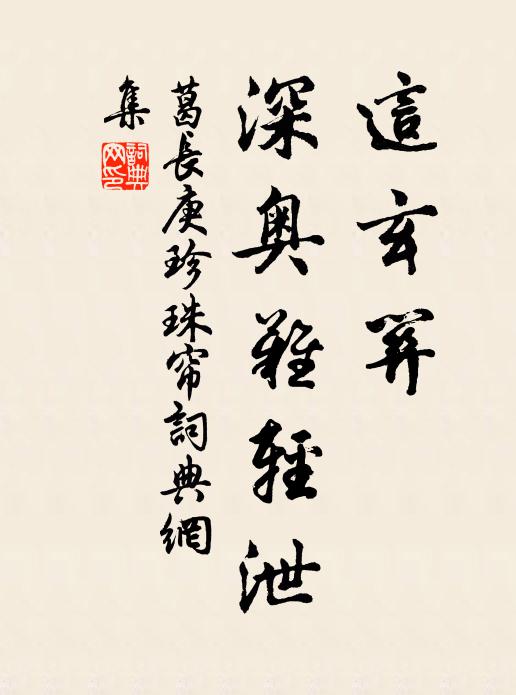 這玄關
深奥難輕泄
葛長庚珍珠帘詞典網
集
詞典網印